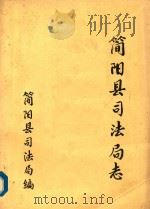 简阳县司法局志
简阳县司法局编